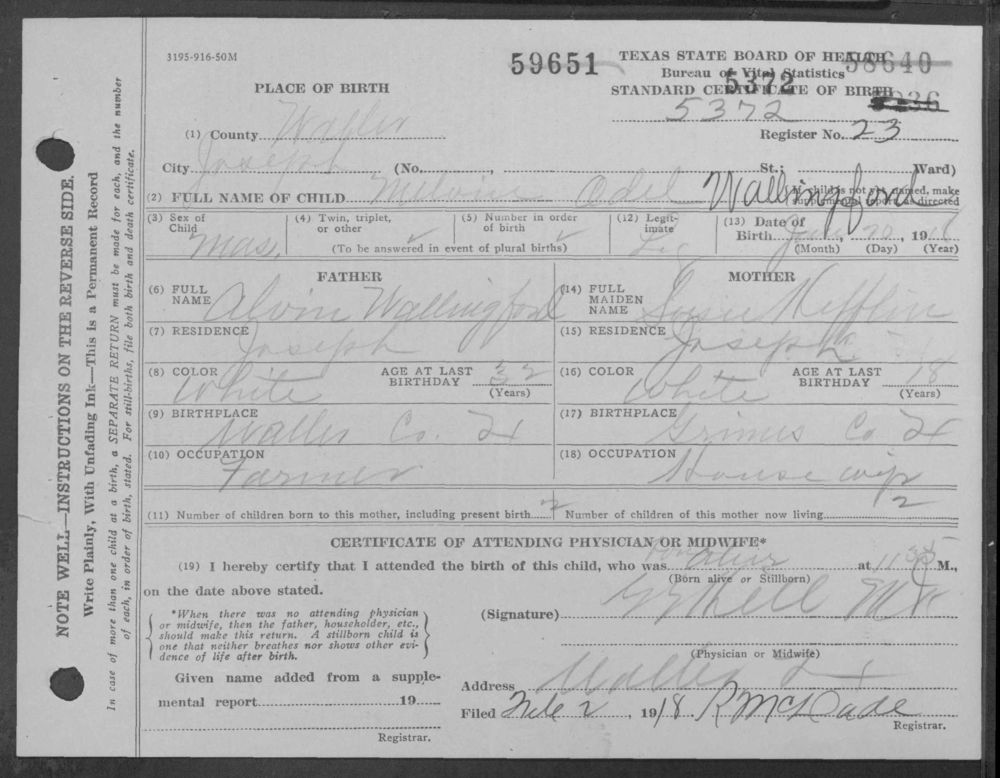 3195-916-50M
59651
TEXAS STATE BOARD OF HEALTH
58640
Bureau of Vital Statistics
5372
PLACE OF BIRTH
STANDARD CERTIFICATE OF BIRTH
5372
(1) County Waller
Register No. 23
City Joseph (No. St.; Ward)
(2) FULL NAME OF CHILD Melvin Odel Wallingford
If child is not yet named, make supplemental report as directed
(3) Sex of Child
(4) Twin, triplet, or other
(5) Number in order of birth
(To be answered in event of plural births)
(12) Legitimate
(13) Date of Birth 19
(Month) (Day) (Year)
FATHER
MOTHER
(6) FULL NAME Alvin Wallingford
(14) FULL MAIDEN NAME
(7) RESIDENCE Joseph
(15) RESIDENCE Joseph
(8) COLOR White
AGE AT LAST BIRTHDAY 32
(Years)
(16) COLOR White
AGE AT LAST BIRTHDAY 18
(Years)
(9) BIRTHPLACE Waller Co. Tx
(17) BIRTHPLACE Grimes Co Tx
(10) OCCUPATION Farmer
(18) OCCUPATION House wife
(11) Number of children born to this mother, including present birth 2
Number of children of this mother now living 2
CERTIFICATE OF ATTENDING PHYSICIAN OR MIDWIFE*
(19) I hereby certify that I attended the birth of this child, who was alive at 11 35 M.,
(Born alive or Stillborn)
on the date above stated.
*When there was no attending physician
or midwife, then the father, householder, etc.,
should make this return. A stillborn child is
one that neither breathes nor shows other evi-
dence of life after birth.
(Signature)
(Physician or Midwife)
Given name added from a supple-
mental report 19
Registrar.
Address Waller Tx
Filed 2, 1918 R McDade
Registrar.
NOTE WELL—INSTRUCTIONS ON THE REVERSE SIDE.
Write Plainly, With Unfading Ink—This is a Permanent Record
In case of more than one child at a birth, a SEPARATE RETURN must be made for each, and the number
of each, in order of birth, stated. For still-births, file both birth and death certificate.